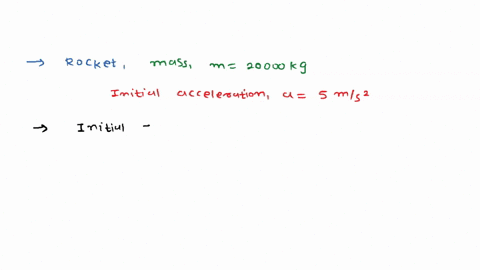 → Rocket, mass, m = 20000 kg
Initial acceleration, a = 5 m/s²
→ Initial -